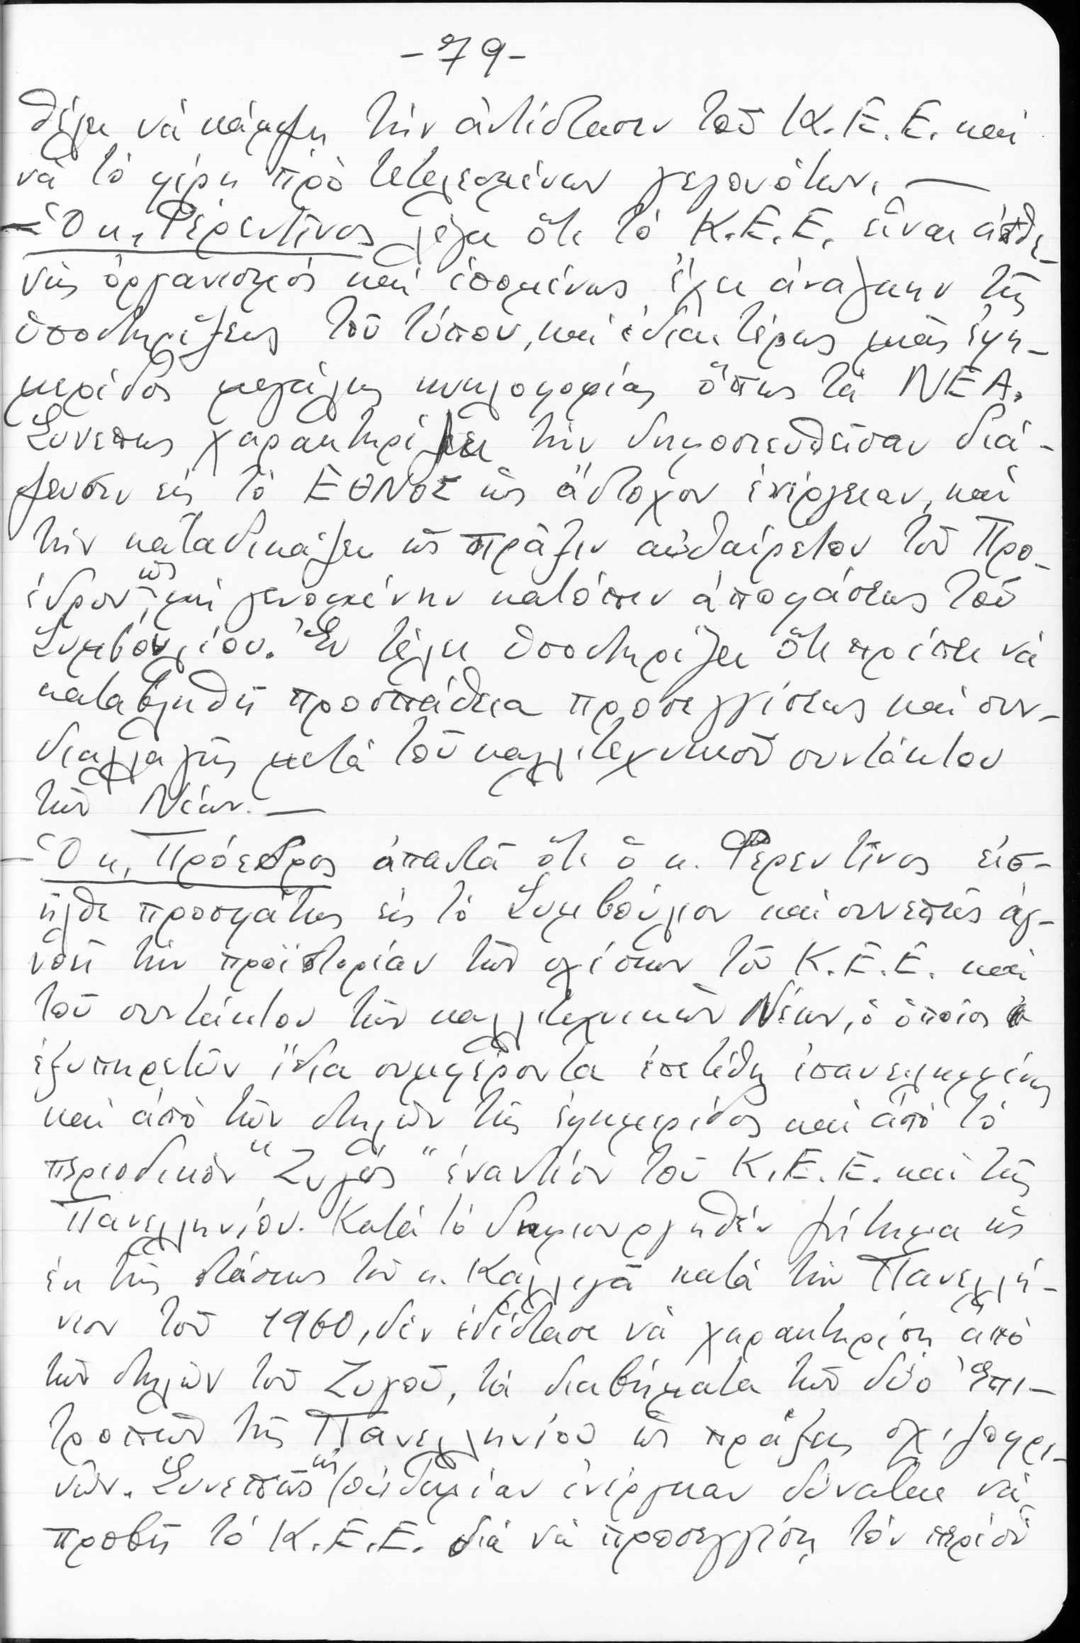 -79-
θέλει νὰ κάμψῃ τὴν ἀντίστασιν τοῦ Κ.Ε.Ε. καὶ
νὰ τὸ φέρῃ πρὸ τετελεσμένων γεγονότων. —
- Ὁ κ. Φερεντῖνος λέγει ὅτι τὸ Κ.Ε.Ε. εἶναι ἀσθε-
νὴς ὀργανισμός καὶ ἑπομένως ἔχει ἀνάγκην τῆς
ὑποστηρίξεως τοῦ τύπου, καὶ ἰδιαιτέρως μιᾶς ἐφη-
μερίδος μεγάλης κυκλοφορίας ὅπως τὰ ΝΕΑ.
Συνεπῶς χαρακτηρίζει τὴν δημοσιευθεῖσαν διά-
ψευσιν εἰς τὸ ΕΘΝΟΣ ὡς ἄστοχον ἐνέργειαν, καὶ
τὴν καταδικάζει ὡς πρᾶξιν αὐθαίρετον τοῦ Προ-
έδρου, ὡς μὴ γενομένην κατόπιν ἀποφάσεως τοῦ
Συμβουλίου. Ἐν τέλει ὑποστηρίζει ὅτι πρέπει νὰ
καταβληθῇ προσπάθεια προσεγγίσεως καὶ συν-
διαλλαγῆς μετὰ τοῦ καλλιτεχνικοῦ συντάκτου
τῶν Νέων. —
- Ὁ κ. Πρόεδρος ἀπαντᾶ ὅτι ὁ κ. Φερεντῖνος εἰσ-
ῆλθε προσφάτως εἰς τὸ Συμβούλιον καὶ συνεπῶς ἀγ-
νοεῖ τὴν προϊστορίαν τῶν σχέσεων τοῦ Κ.Ε.Ε. καὶ
τοῦ συντάκτου τῶν καλλιτεχνικῶν Νέων, ὁ ὁποῖος
ἐξυπηρετῶν ἴδια συμφέροντα ἐπετέθη ἐπανειλημμένως
καὶ ἀπὸ τῶν στηλῶν τῆς ἐφημερίδος καὶ ἀπὸ τὸ
περιοδικὸν "Ζυγὸς" ἐναντίον τοῦ Κ.Ε.Ε. καὶ τῆς
Πανελληνίου. Κατὰ τὸ δημιουργηθὲν ζήτημα ὡς
ἐκ τῆς στάσεως τοῦ κ. Καλλιγᾶ κατὰ τὴν Πανελλή-
νιον τοῦ 1960, δὲν ἐδίστασε νὰ χαρακτηρίσῃ ἀπὸ
τῶν στηλῶν τοῦ Ζυγοῦ, τὰ διαβήματα τῶν δύο Ἐπι-
τροπῶν τῆς Πανελληνίου ὡς πράξεις σχιζοφρε-
νῶν. Συνεπῶς οὐδεμίαν ἐνέργειαν δύναται νὰ
προβῇ τὸ Κ.Ε.Ε. διὰ νὰ προσεγγίσῃ τὸν περὶ οὗ